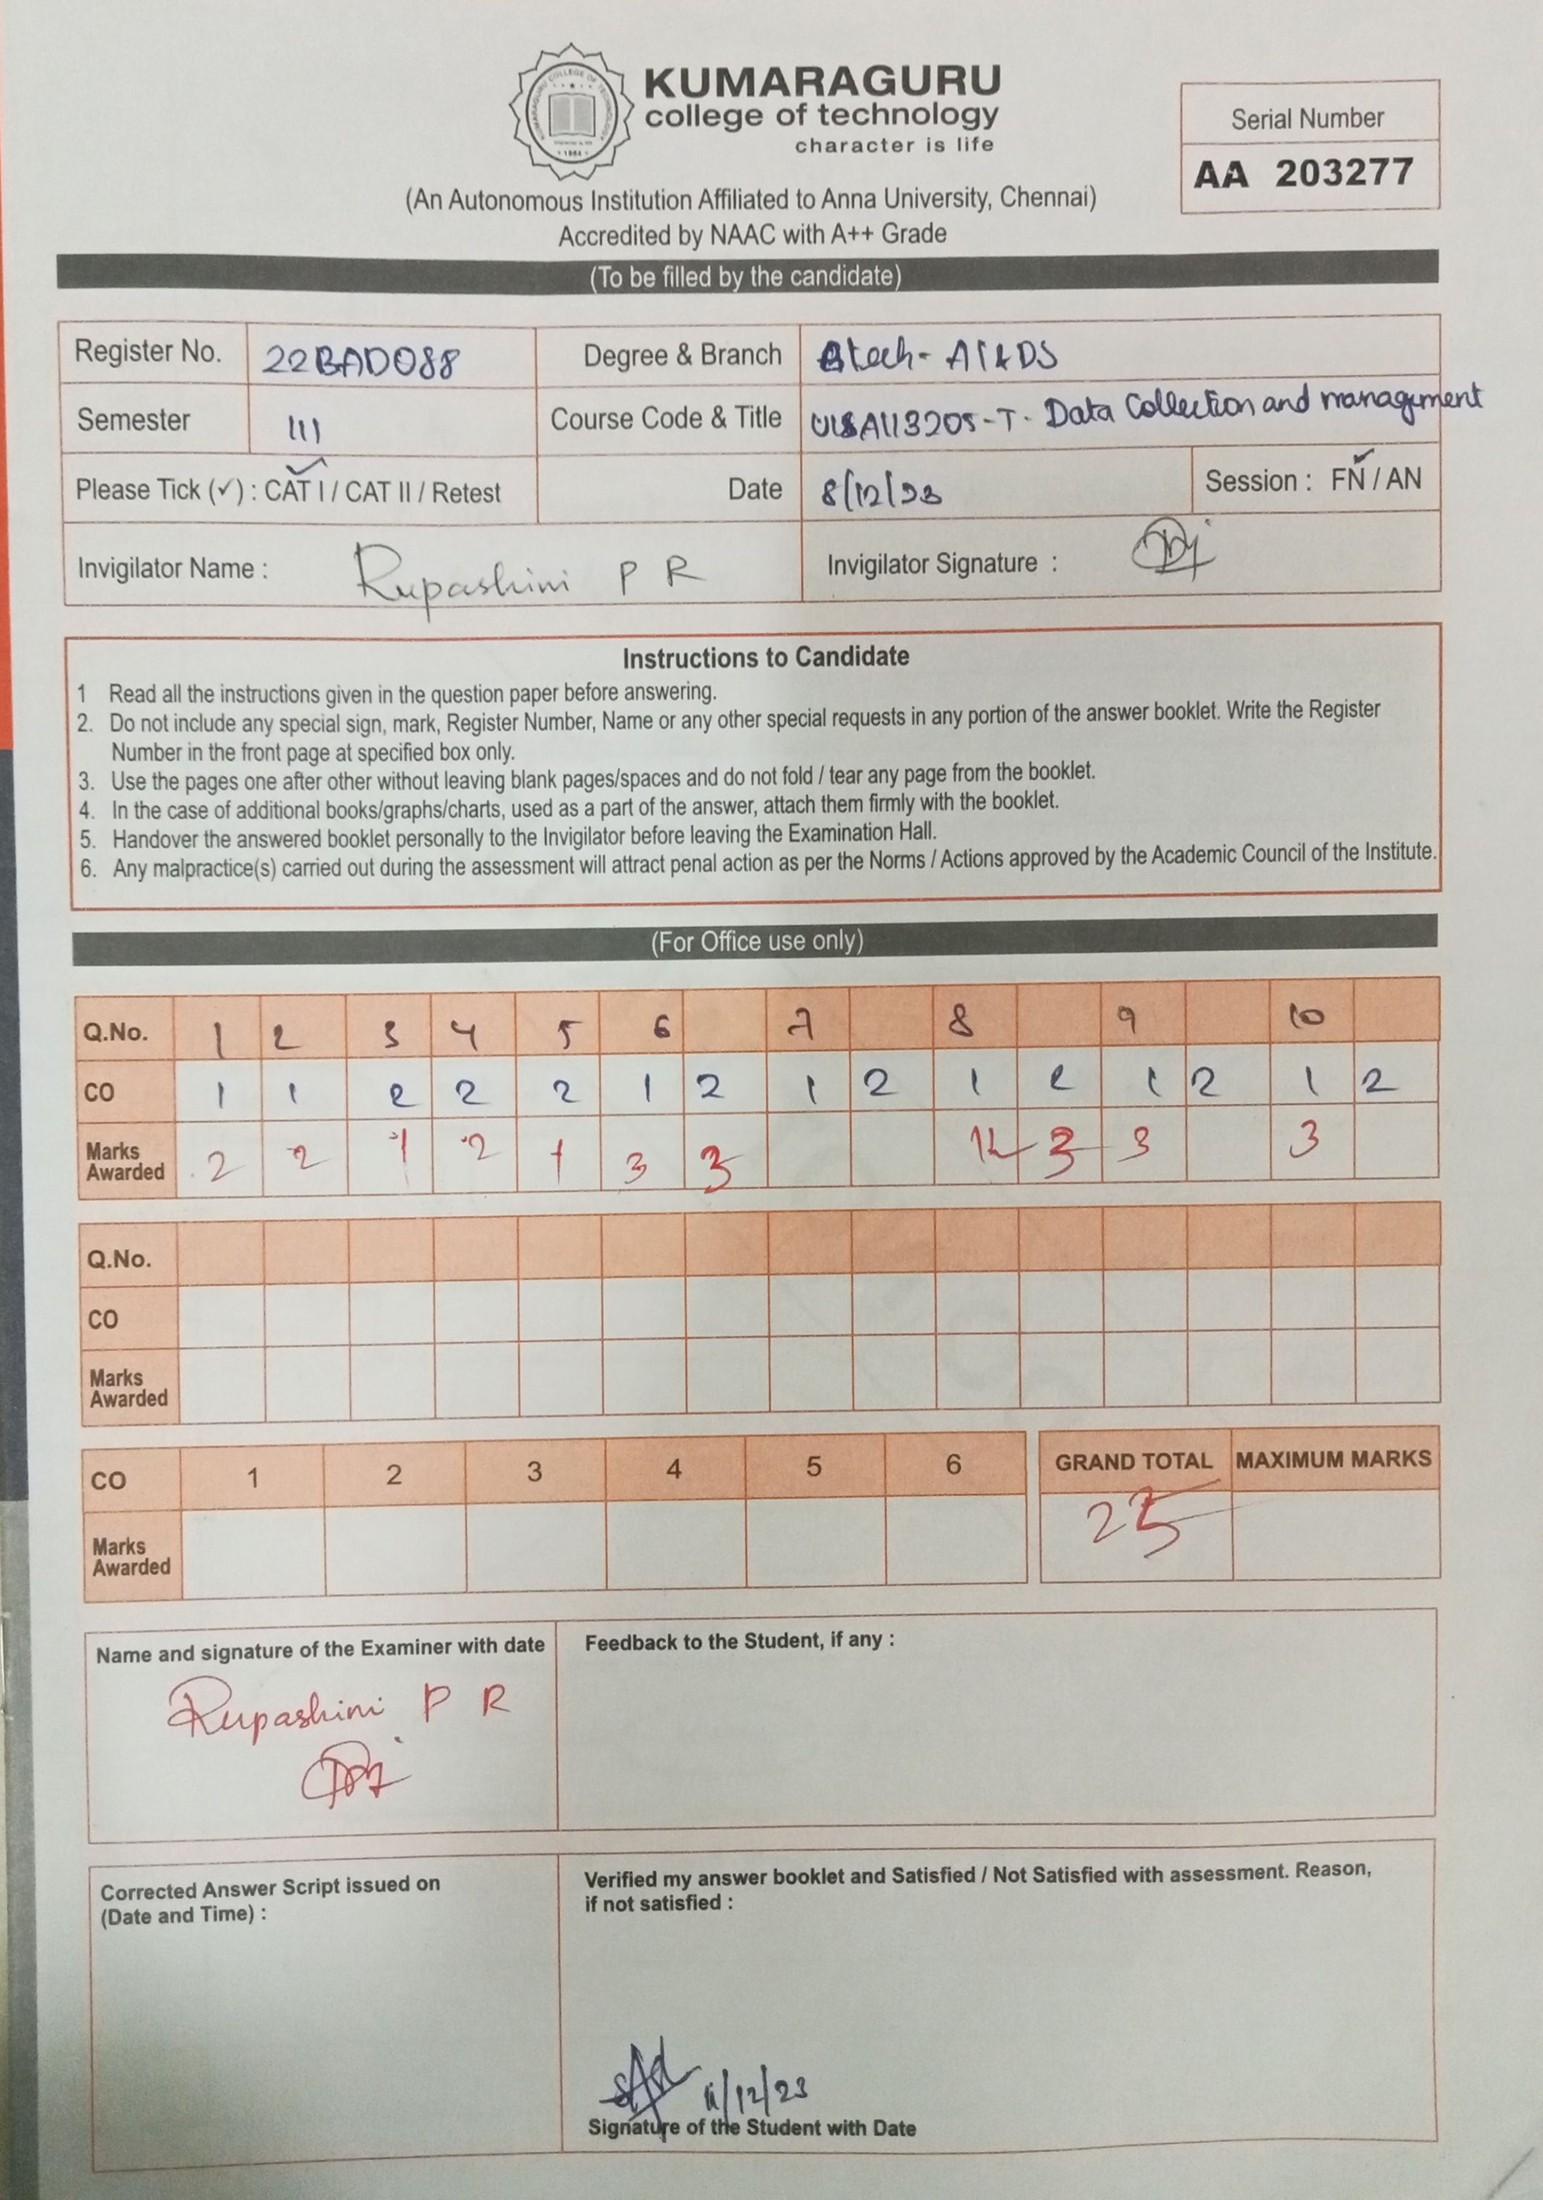 KUMARAGURU
college of technology
character is life
Serial Number
AA 203277
(An Autonomous Institution Affiliated to Anna University, Chennai)
Accredited by NAAC with A++ Grade
(To be filled by the candidate)
Register No. 22BAD088 Degree & Branch Btech - AI & DS
Semester III Course Code & Title Data Collection and management
Please Tick (✓) : CAT I / CAT II / Retest Date 8/12/23 Session : FN / AN
Invigilator Name : Rupashini P R Invigilator Signature :
Instructions to Candidate
1 Read all the instructions given in the question paper before answering.
2. Do not include any special sign, mark, Register Number, Name or any other special requests in any portion of the answer booklet. Write the Register
Number in the front page at specified box only.
3. Use the pages one after other without leaving blank pages/spaces and do not fold / tear any page from the booklet.
4. In the case of additional books/graphs/charts, used as a part of the answer, attach them firmly with the booklet.
5. Handover the answered booklet personally to the Invigilator before leaving the Examination Hall.
6. Any malpractice(s) carried out during the assessment will attract penal action as per the Norms / Actions approved by the Academic Council of the Institute.
(For Office use only)
Q.No. 1 2 3 4 5 6 7 8 9 10
CO 1 1 2 2 2 1 2 1 2 1 2 1 2 1 2
Marks Awarded 2 2 1 2 1 3 3 3 3 3
Q.No.
CO
Marks Awarded
CO 1 2 3 4 5 6 GRAND TOTAL MAXIMUM MARKS
Marks Awarded 25
Name and signature of the Examiner with date
Rupashini P R
Feedback to the Student, if any :
Corrected Answer Script issued on
(Date and Time) :
Verified my answer booklet and Satisfied / Not Satisfied with assessment. Reason,
if not satisfied :
11/12/23
Signature of the Student with Date